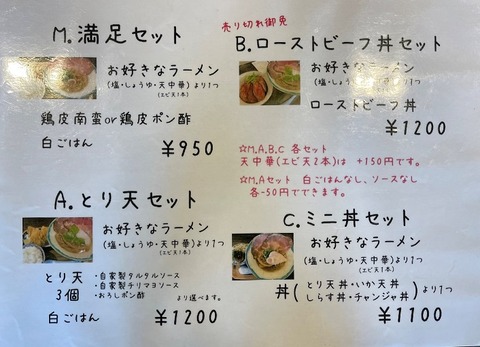 M.満足セット
お好きなラーメン
(塩・しょうゆ・天中華)より1つ
(エビ天1本)
鶏皮南蛮or鶏皮ポン酢
白ごはん
¥950
売り切れ御免
B.ローストビーフ丼セット
お好きなラーメン
(塩・しょうゆ・天中華)より1つ
(エビ天1本)
ローストビーフ丼
¥1200
☆M.A.B.C 各セット
天中華(エビ天2本)は +150円です。
☆M.Aセット 白ごはんなし、ソースなし
各-50円でできます。
A.とり天セット
お好きなラーメン
(塩・しょうゆ・天中華)より1つ
(エビ天1本)
とり天
3個
・自家製タルタルソース
・自家製チリマヨソース
・おろしポン酢
より選べます。
白ごはん
¥1200
C.ミニ丼セット
お好きなラーメン
(塩・しょうゆ・天中華)より1つ
(エビ天1本)
丼(とり天丼・いか天丼
しらす丼・チャンジャ丼)より1つ
¥1100